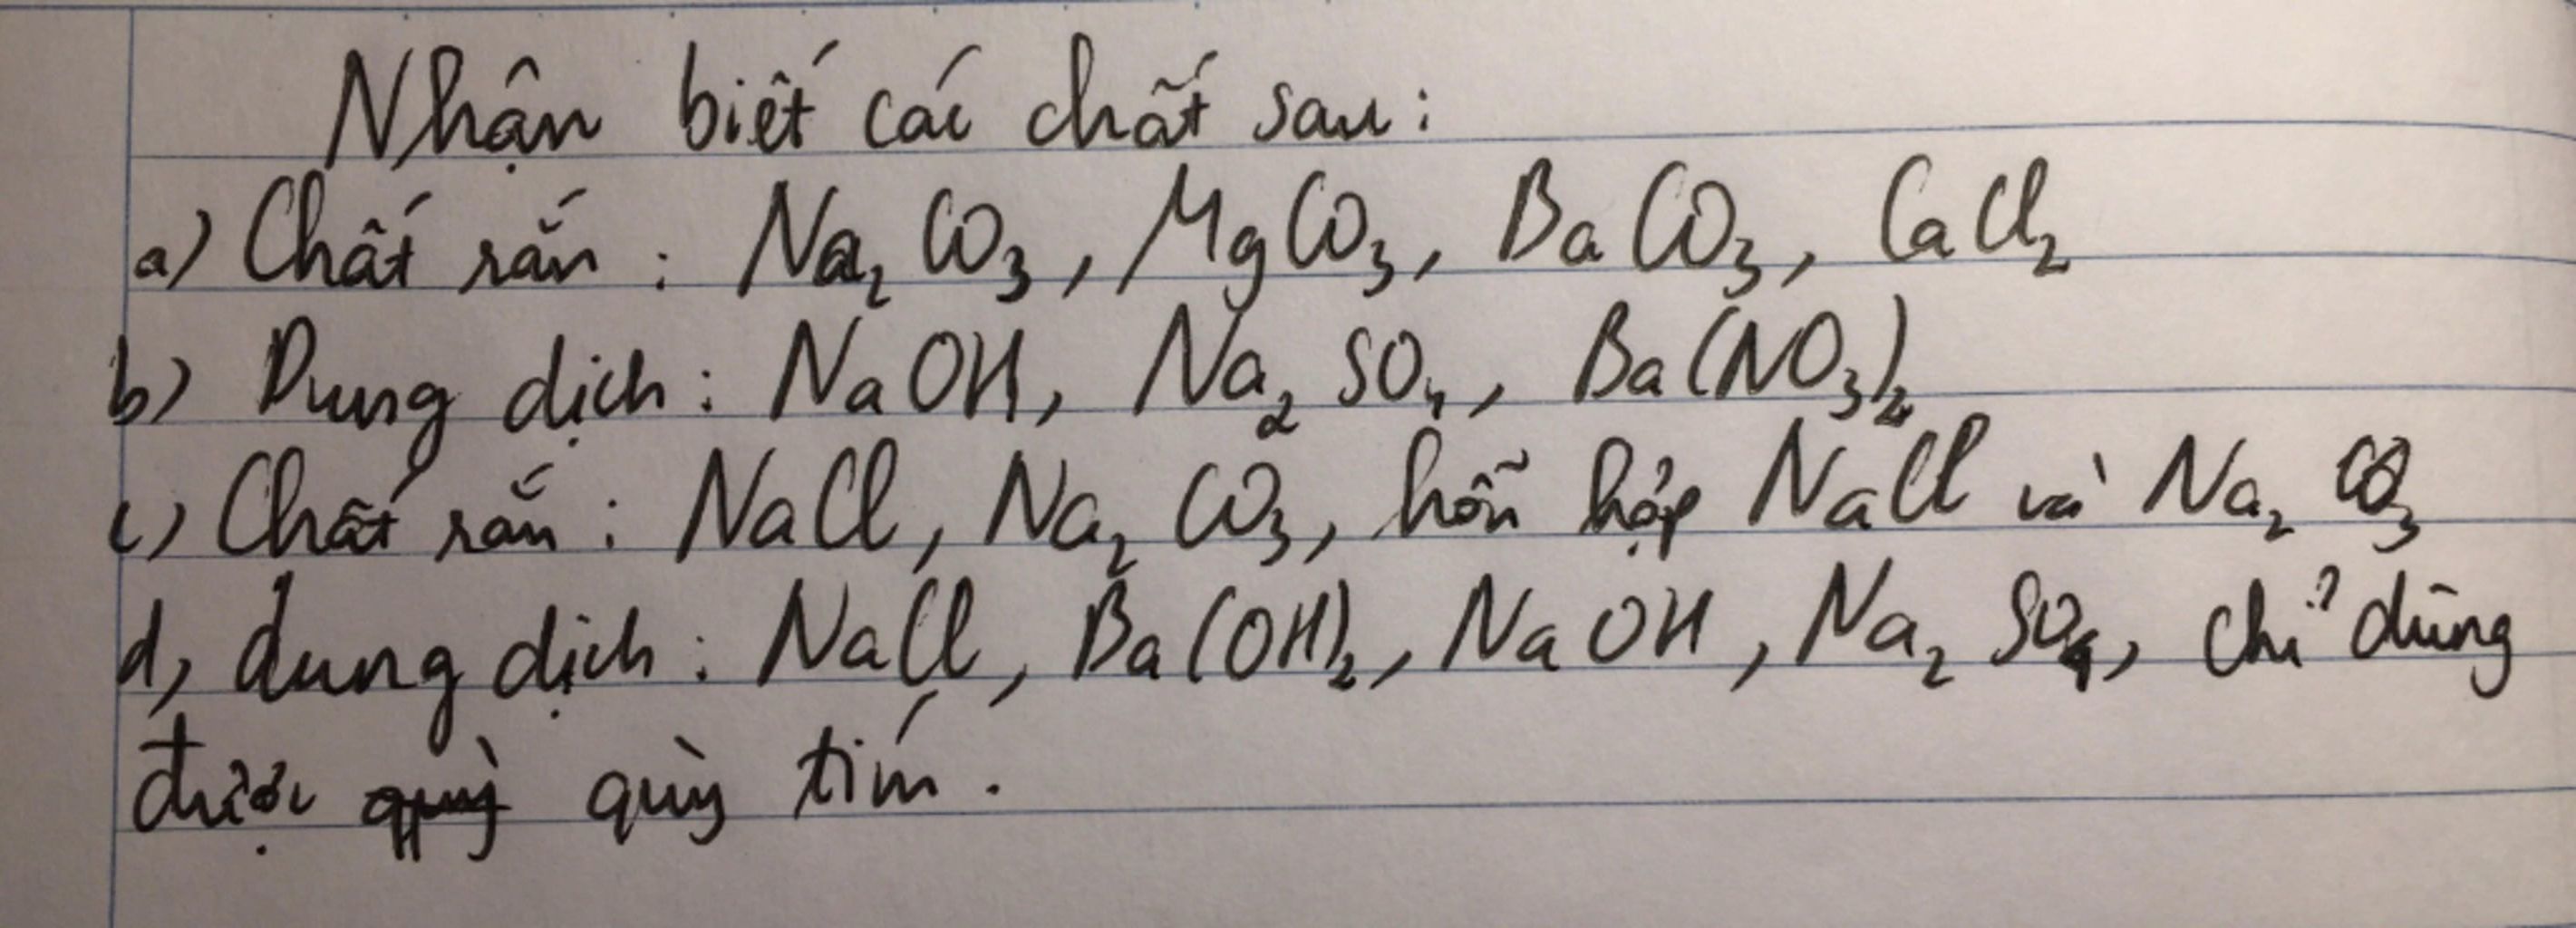 Nhận biết các chất sau:
a) Chất rắn : Na₂CO₃, MgCO₃, BaCO₃, CaCl₂
b) Dung dịch : NaOH, Na₂SO₄, Ba(NO₃)₂
c) Chất rắn : NaCl, Na₂CO₃, hỗn hợp NaCl và Na₂CO₃
d, dung dịch : NaCl, Ba(OH)₂, NaOH, Na₂SO₄, chỉ dùng
được quỳ tím.